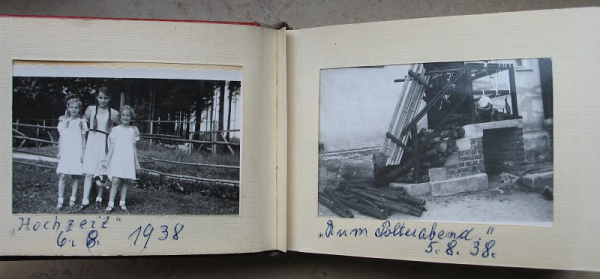 „Hochzeit"
6. 8. 1938
„Zum Polterabend."
5. 8. 38.